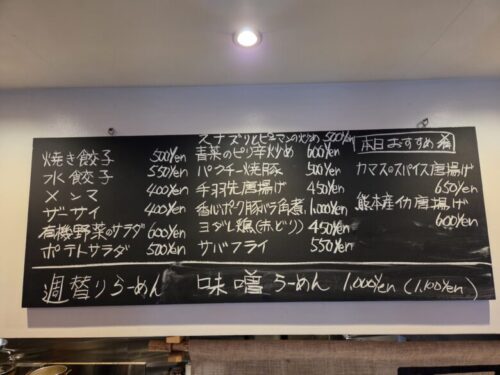 焼き餃子 500Yen
水餃子 550Yen
メンマ 400Yen
ザーサイ 400Yen
有機野菜のサラダ 600Yen
ポテトサラダ 500Yen
スナズリとピーマンの炒め 500Yen
青菜のピリ辛炒め 600Yen
パクチー焼豚 500Yen
手羽先唐揚げ 450Yen
香心ポーク豚バラ角煮 1,000Yen
ヨダレ鶏(赤どり) 450Yen
サバフライ 550Yen
本日おすすめ
カマスのスパイス唐揚げ
650Yen
熊本産イカ唐揚げ
600Yen
週替りらーめん 味噌らーめん 1,000Yen (1,100Yen)